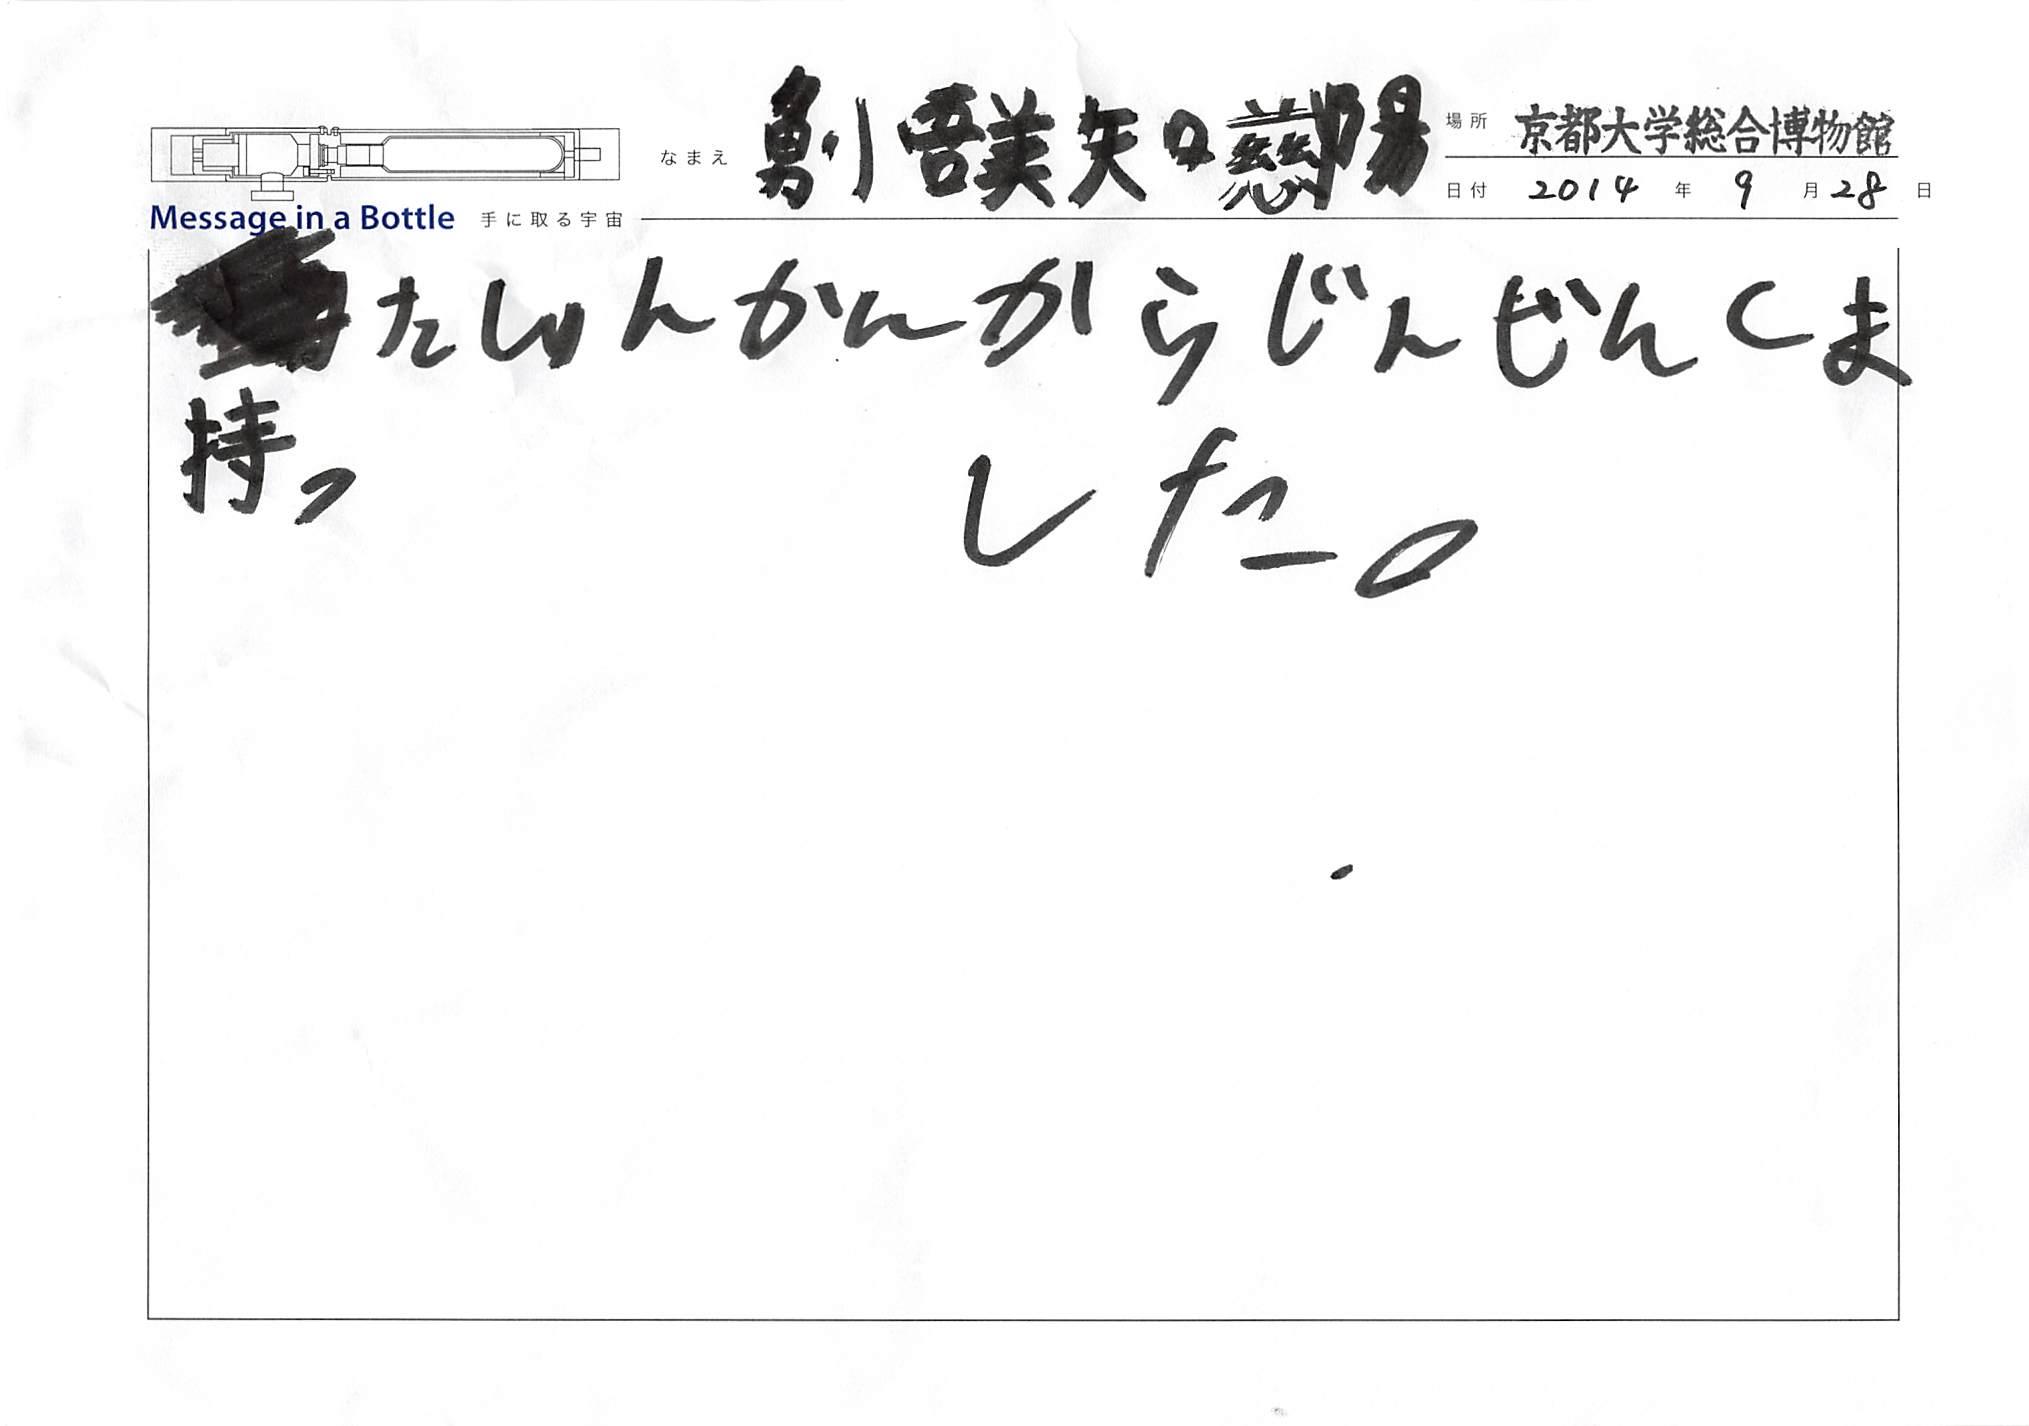 なまえ
場所 京都大学総合博物館
日付 2014 年 9 月 28 日
Message in a Bottle 手に取る宇宙
持っ
たしゅんかんからじんじんしま
した。